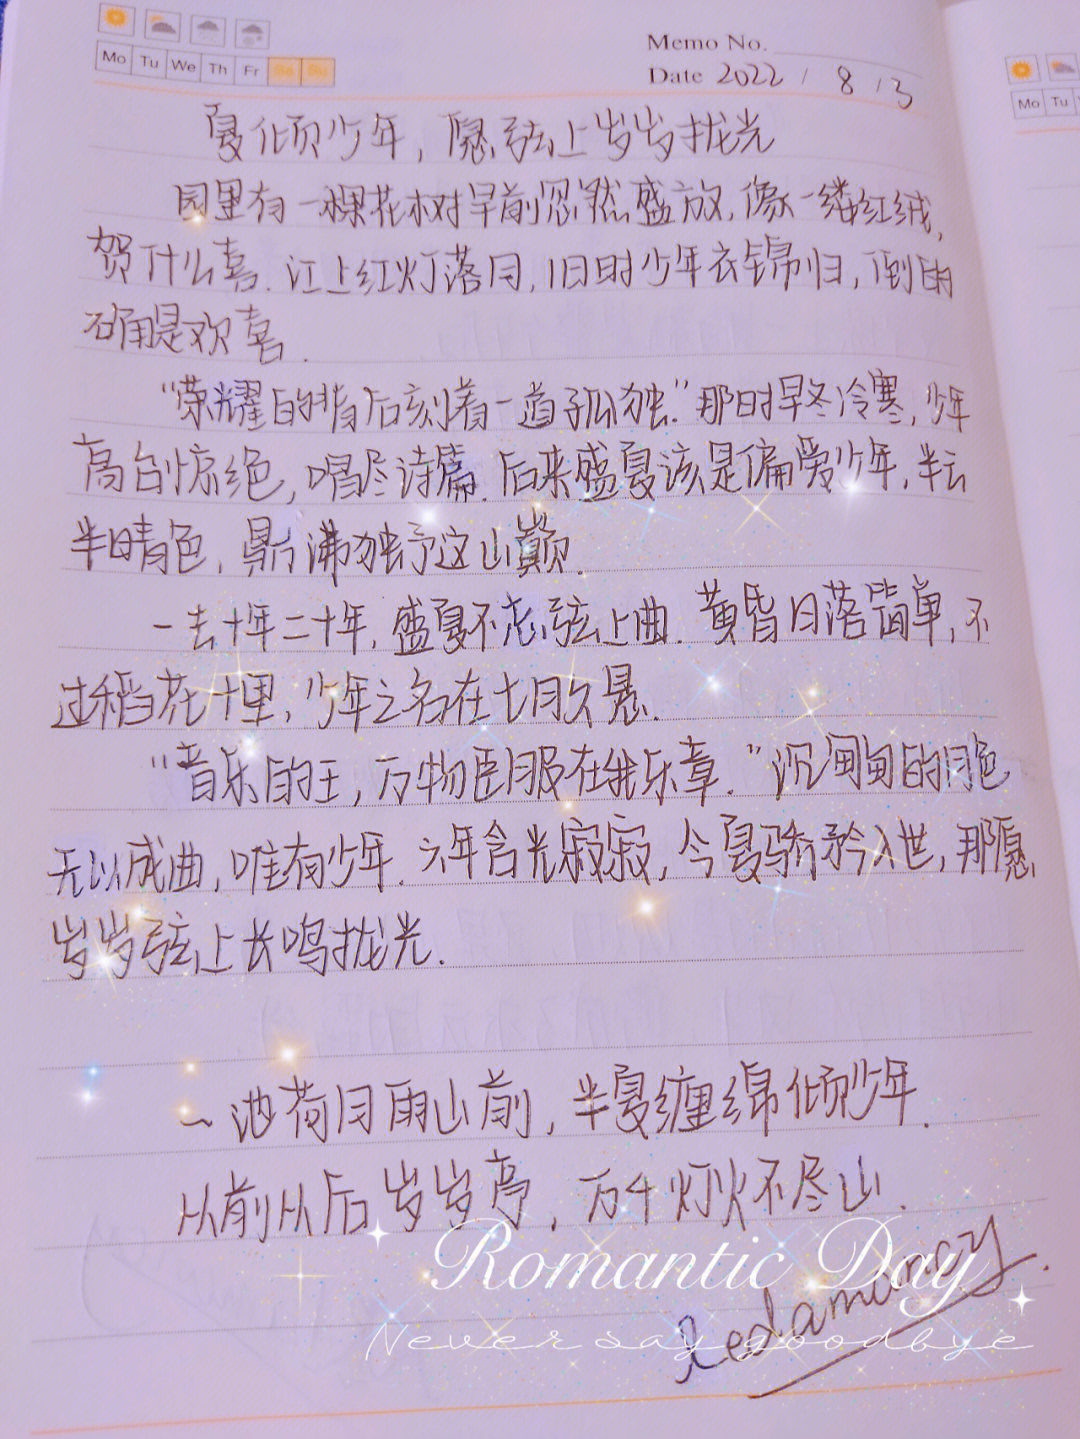 Mo Tu We Th Fr Sa Su
Memo No.
Date 2022 / 8 / 3
Mo Tu
夏倾少年，愿弦上岁岁拢光
园里有一棵花树早前忽然盛放，像一缕红绒，
贺什么喜．江上红灯落月，旧时少年衣锦归，倒的
确是欢喜．
“荣耀的背后刻着一道孤独.”那时早冬冷寒，少年
高台惊绝，唱尽诗篇．后来盛夏该是偏爱少年，半云
半晴色，鼎沸独予这山巅．
一去十年二十年，盛夏不忘弦上曲．黄昏日落简单，不
过稻花十里，少年之名在七月久悬．
“音乐的王，万物臣服在我乐章．”沉甸甸的月色
无以成曲，唯有少年．六年含光寂寂，今夏骄矜入世，那愿
岁岁弦上长鸣拢光．
~池荷月雨山前，半夏缠绵倾少年．
从前从后岁岁亭，万千灯火不尽山．
Romantic Day
Redamancy.
Never say goodbye